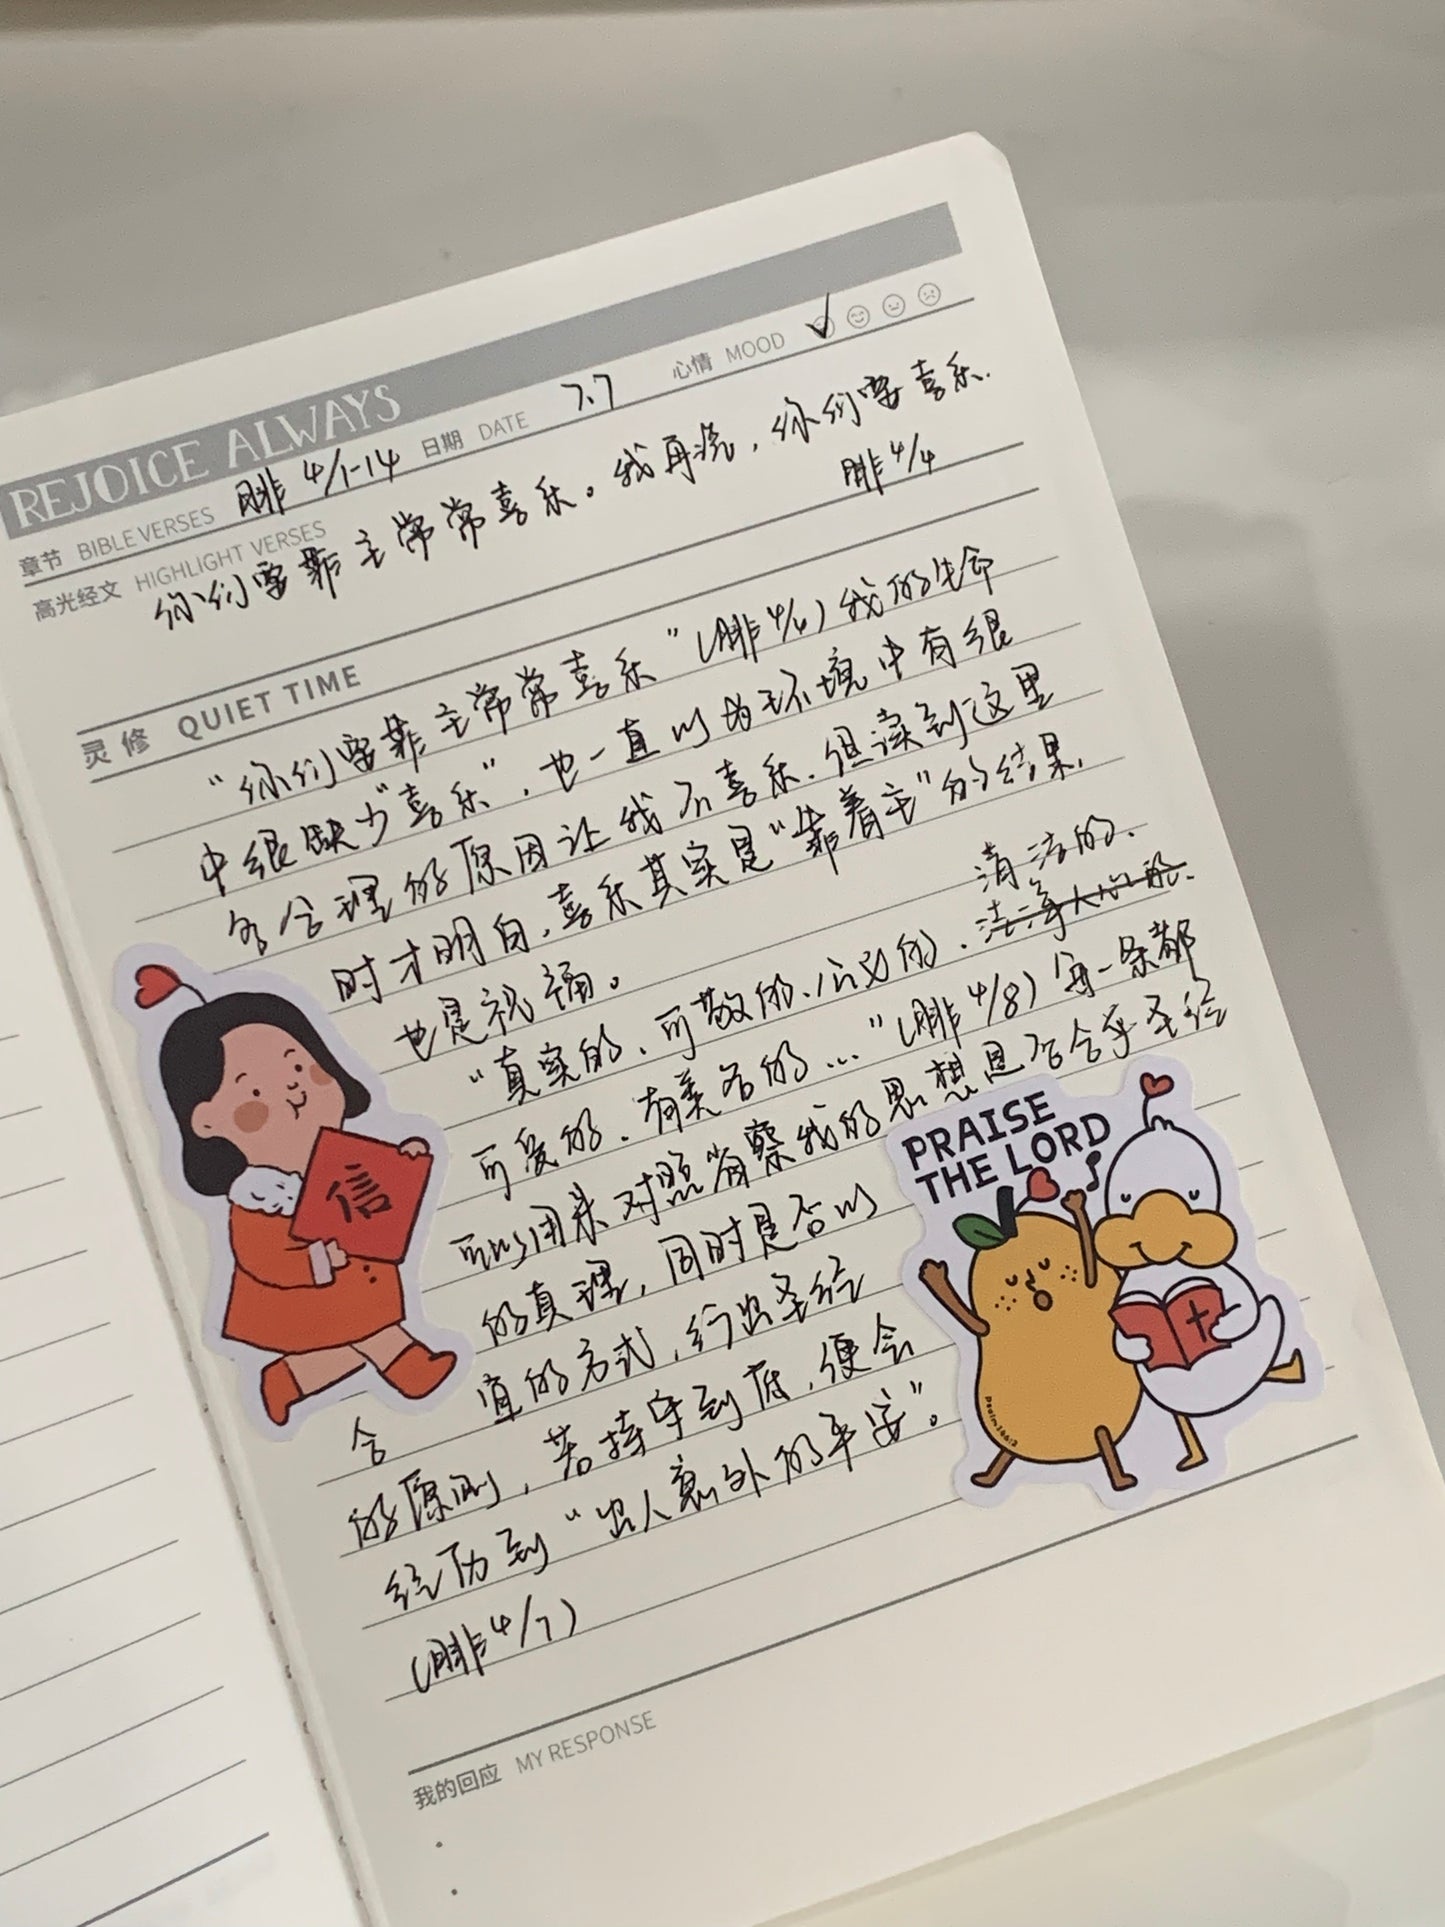 REJOICE ALWAYS
章节 BIBLE VERSES 腓 4/1-14 日期 DATE 7.7 心情 MOOD
高光经文 HIGHLIGHT VERSES
你们要靠主常常喜乐。我再说，你们要喜乐.
腓 4/4
灵修 QUIET TIME
"你们要靠主常常喜乐"(腓 4/4)我的生命
中很缺少"喜乐"，也一直以为环境中有很
多合理的原因让我不喜乐.但读到这里
时才明白,喜乐其实是"靠着主"的结果,
也是祝福。
清洁的、
"真实的、可敬的、公义的、
可爱的、有美名的..."(腓 4/8)每一条都
可以用来对照省察我的思想是否合乎圣经
的真理，同时是否以
合宜的方式，行出圣经
的原则，若持守到底，便会
经历到"出人意外的平安"。
(腓 4/7)
信
PRAISE
THE LORD
我的回应 MY RESPONSE